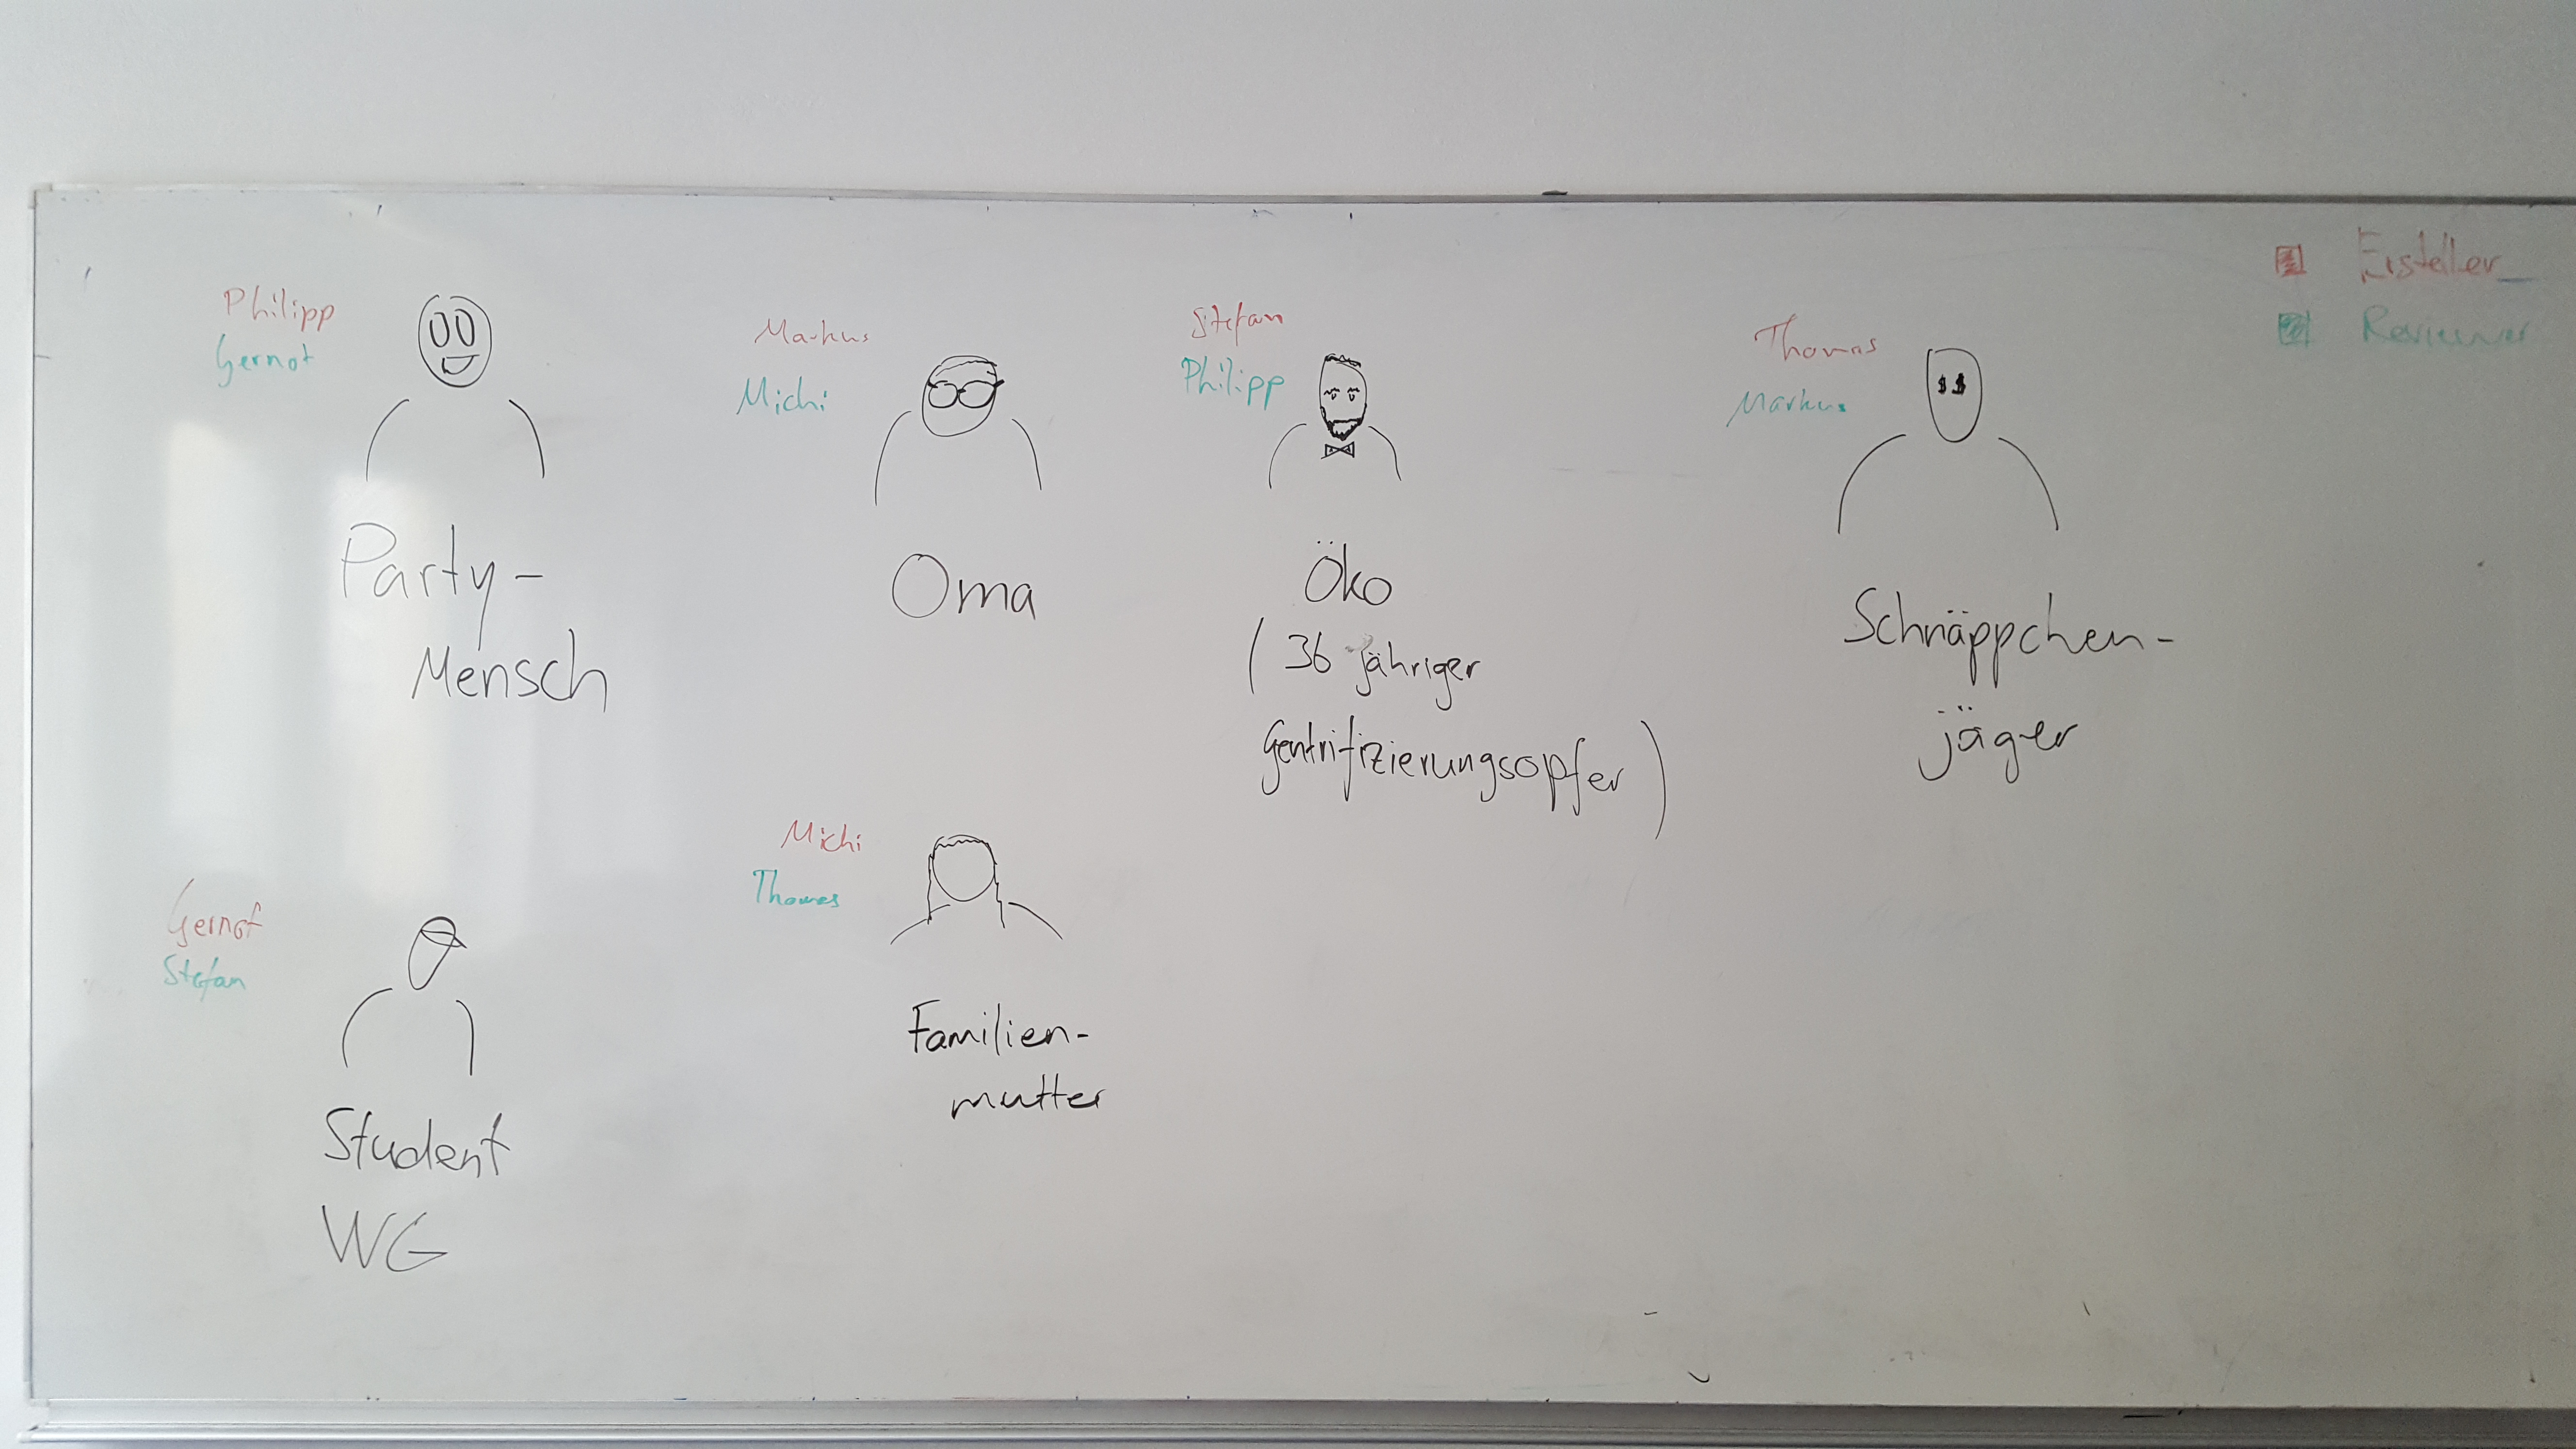 Philipp
Gernot
Party-
Mensch
Markus
Michi
Oma
Stefan
Philipp
Öko
( 36 jähriger
Gentrifizierungsopfer )
Thomas
Markus
Schnäppchen-
jäger
Ersteller
Reviewer
Gernot
Stefan
Student
WG
Michi
Thomas
Familien-
mutter